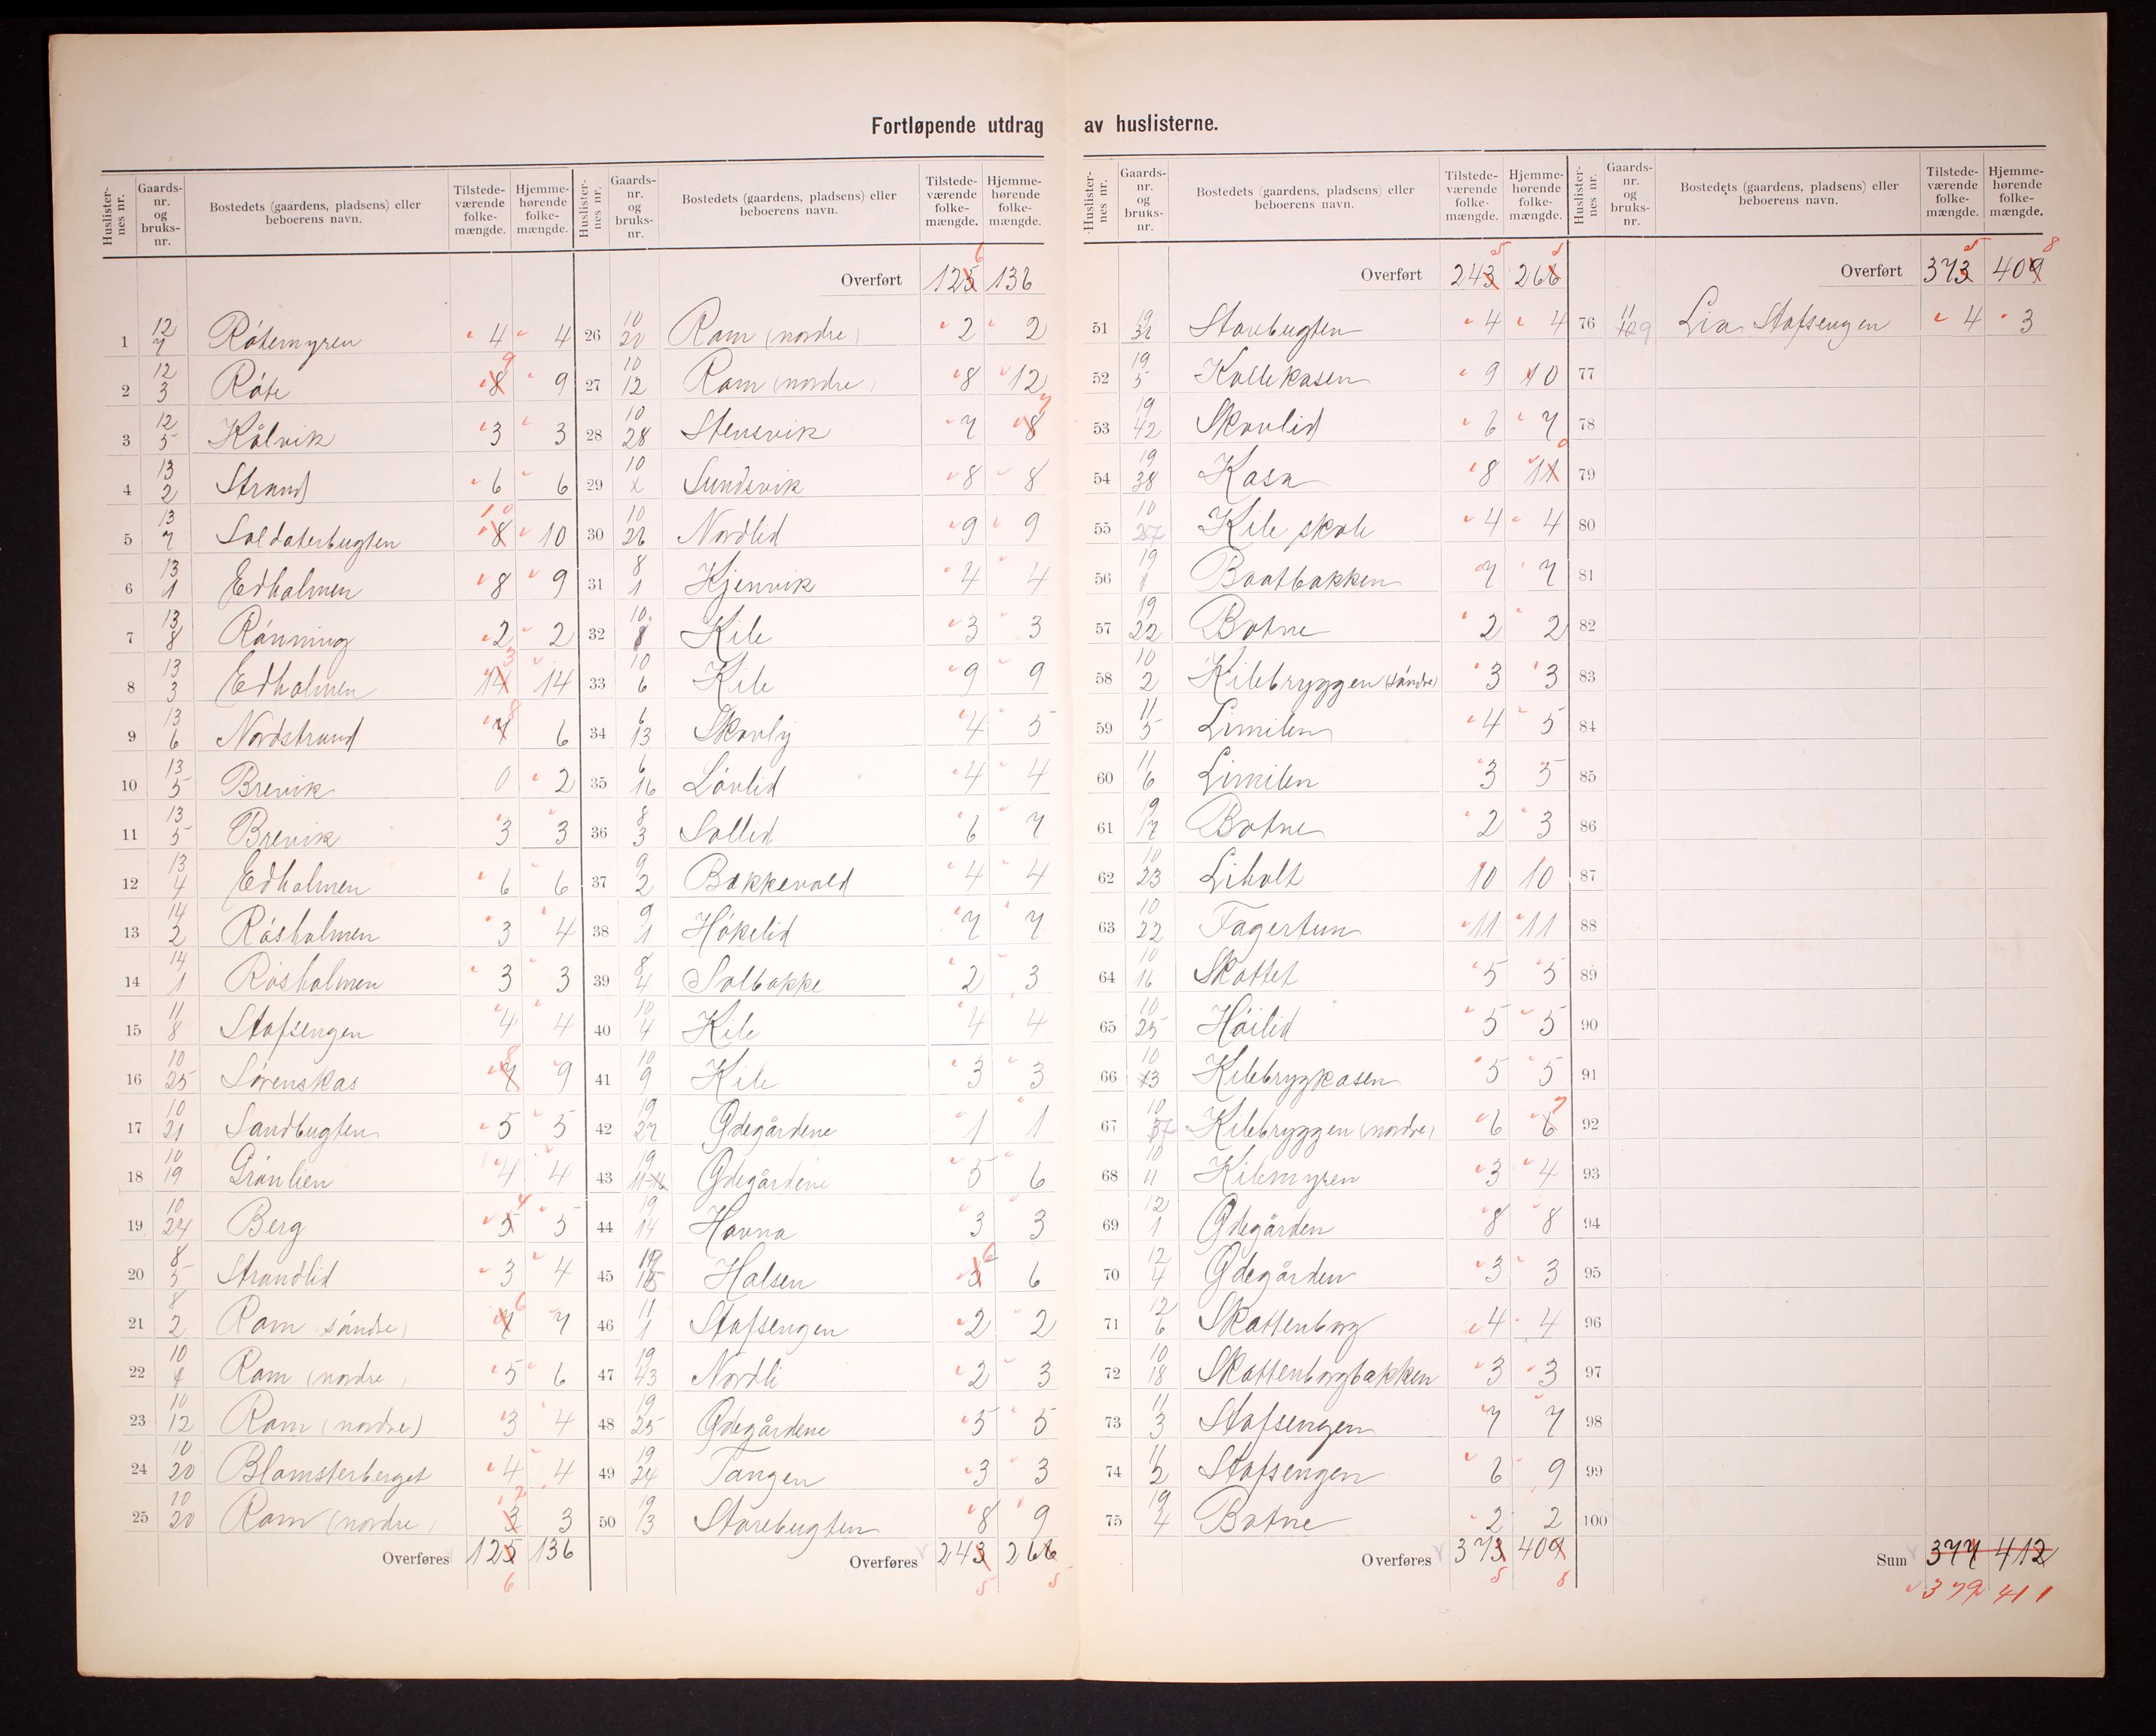 Fortløpende utdrag av huslisterne.
Huslisternes nr. Gaards-nr. og bruks-nr. Bostedets (gaardens, pladsens) eller beboerens navn. Tilstede-værende folke-mængde. Hjemme-hørende folke-mængde.
1 12/7 Røtemyren 4 4
2 12/3 Røte 8 9 9
3 12/5 Kålvik 3 3
4 13/2 Strand 6 6
5 13/7 Soldaterbugten 8 10 10
6 13/1 Edholmen 8 9
7 13/8 Rønning 2 2
8 13/3 Edholmen 14 3 14
9 13/6 Nordstrand 7 8 6
10 13/5 Brevik 0 2
11 13/5 Brevik 3 3
12 13/4 Edholmen 6 6
13 14/2 Råsholmen 3 4
14 14/1 Råsholmen 3 3
15 11/8 Stafsengen 4 4
16 10/25 Sørenskås 7 8 9
17 10/21 Sandbugten 5 5
18 10/19 Grønlien 4 4
19 10/24 Berg 5 4 5
20 8/5 Strandlid 3 4
21 8/2 Ram (søndre) 7 6 7
22 10/1 Ram (nordre) 5 6
23 10/12 Ram (nordre) 3 4
24 10/20 Blomsterberget 4 4
25 10/20 Ram (nordre) 3 2 3
Overføres 125 6 136
Huslisternes nr. Gaards-nr. og bruks-nr. Bostedets (gaardens, pladsens) eller beboerens navn. Tilstede-værende folke-mængde. Hjemme-hørende folke-mængde.
Overført 125 6 136
26 10/20 Ram (nordre) 2 2
27 10/12 Ram (nordre) 8 12
28 10/28 Stensvik 7 8 7
29 10/x Sundsvik 8 8
30 10/26 Nordlid 9 9
31 8/1 Kjenvik 4 4
32 10/8 Kile 3 3
33 10/6 Kile 9 9
34 6/13 Skovly 4 5
35 6/16 Løvlid 4 4
36 8/3 Sollid 6 7
37 9/2 Bakkevold 4 4
38 9/1 Håkelid 7 7
39 8/4 Solbakke 2 3
40 10/4 Kile 4 4
41 10/9 Kile 3 3
42 19/27 Ødegårdene 1 1
43 19/11-16 Ødegårdene 5 6
44 19/14 Havna 3 3
45 19/15 Halsen 5 6 6
46 11/1 Stafsengen 2 2
47 19/43 Nordli 2 3
48 19/25 Ødegårdene 5 5
49 19/24 Tangen 3 3
50 19/13 Storebugten 8 9
Overføres 243 5 266 5
Huslisternes nr. Gaards-nr. og bruks-nr. Bostedets (gaardens, pladsens) eller beboerens navn. Tilstede-værende folke-mængde. Hjemme-hørende folke-mængde.
Overført 243 5 266 5
51 19/32 Storebugten 4 4
52 19/5 Kollekåsen 9 10
53 19/42 Skovlid 6 7
54 19/38 Kasa 8 11 0
55 10/27 Kile skole 4 4
56 19/1 Braatbakken 7 7
57 19/22 Botne 2 2
58 10/2 Kilebryggen (søndre) 3 3
59 11/5 Limilen 4 5
60 11/6 Limilen 3 5
61 19/17 Botne 2 3
62 10/23 Liholt 10 10
63 10/22 Fagertun 11 11
64 10/16 Skottet 5 5
65 10/25 Høilid 5 5
66 10/13 Kilebrygkåsen 5 5
67 10/37 Kilebryggen (nordre) 6 6 7
68 10/11 Kilemyren 3 4
69 12/1 Ødegården 8 8
70 12/4 Ødegården 3 3
71 12/6 Skottenborg 4 4
72 10/18 Skottenborgbakken 3 3
73 11/3 Stafsengen 7 7
74 11/2 Stafsengen 6 9
75 19/4 Botne 2 2
Overføres 373 5 409 8
Huslisternes nr. Gaards-nr. og bruks-nr. Bostedets (gaardens, pladsens) eller beboerens navn. Tilstede-værende folke-mængde. Hjemme-hørende folke-mængde.
Overført 373 5 409 8
76 11/9 Lia, Stafsengen 4 3
77
78
79
80
81
82
83
84
85
86
87
88
89
90
91
92
93
94
95
96
97
98
99
100
Sum 377 412
379 411